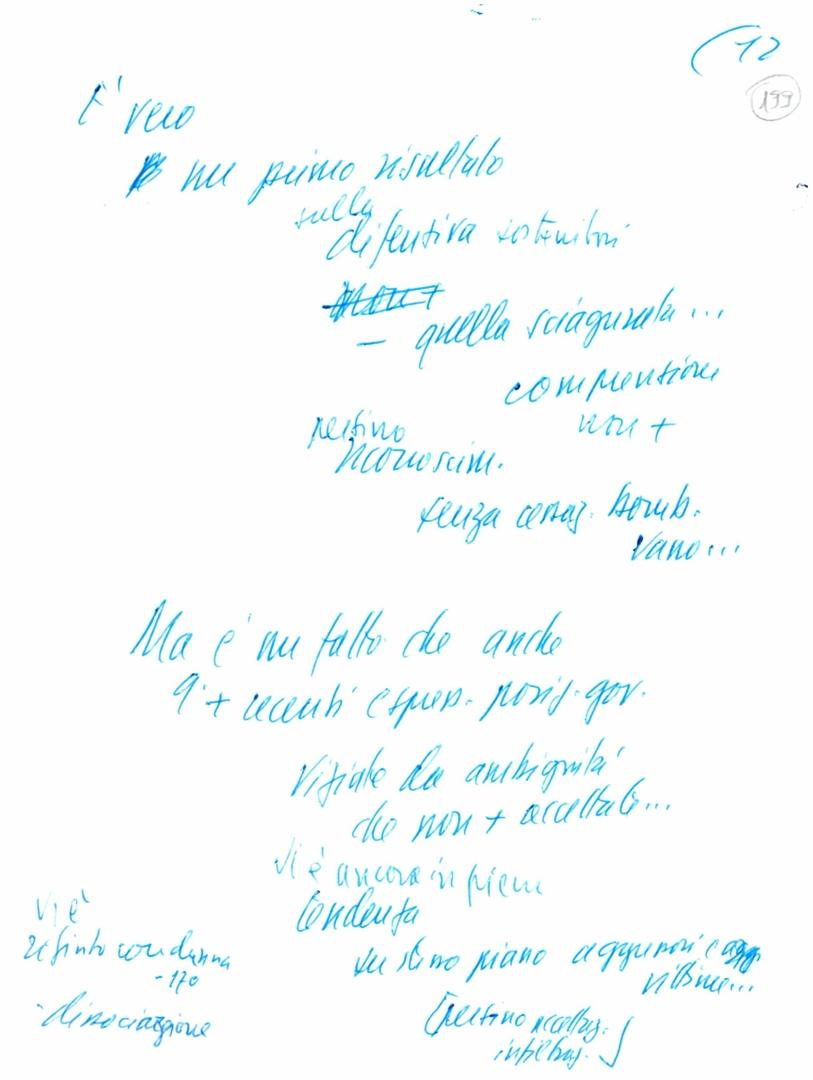 (12
199
E' vero
un primo risultato
sulla
difensiva sostenitori
- quella sciagurata...
comprensione
non +
persino
riconoscim.
senza cessaz. bomb.
vano...
Ma è un fatto che anche
q. + recenti espress. posiz. gov.
viziate da ambiguità
che non + accettab...
Vi è ancora in pieno
tendenza
su stesso piano aggressori e
vittime...
[persino accettaz.
infiltraz.]
Vi è
rifiuto condanna
- 170
- dissociazione